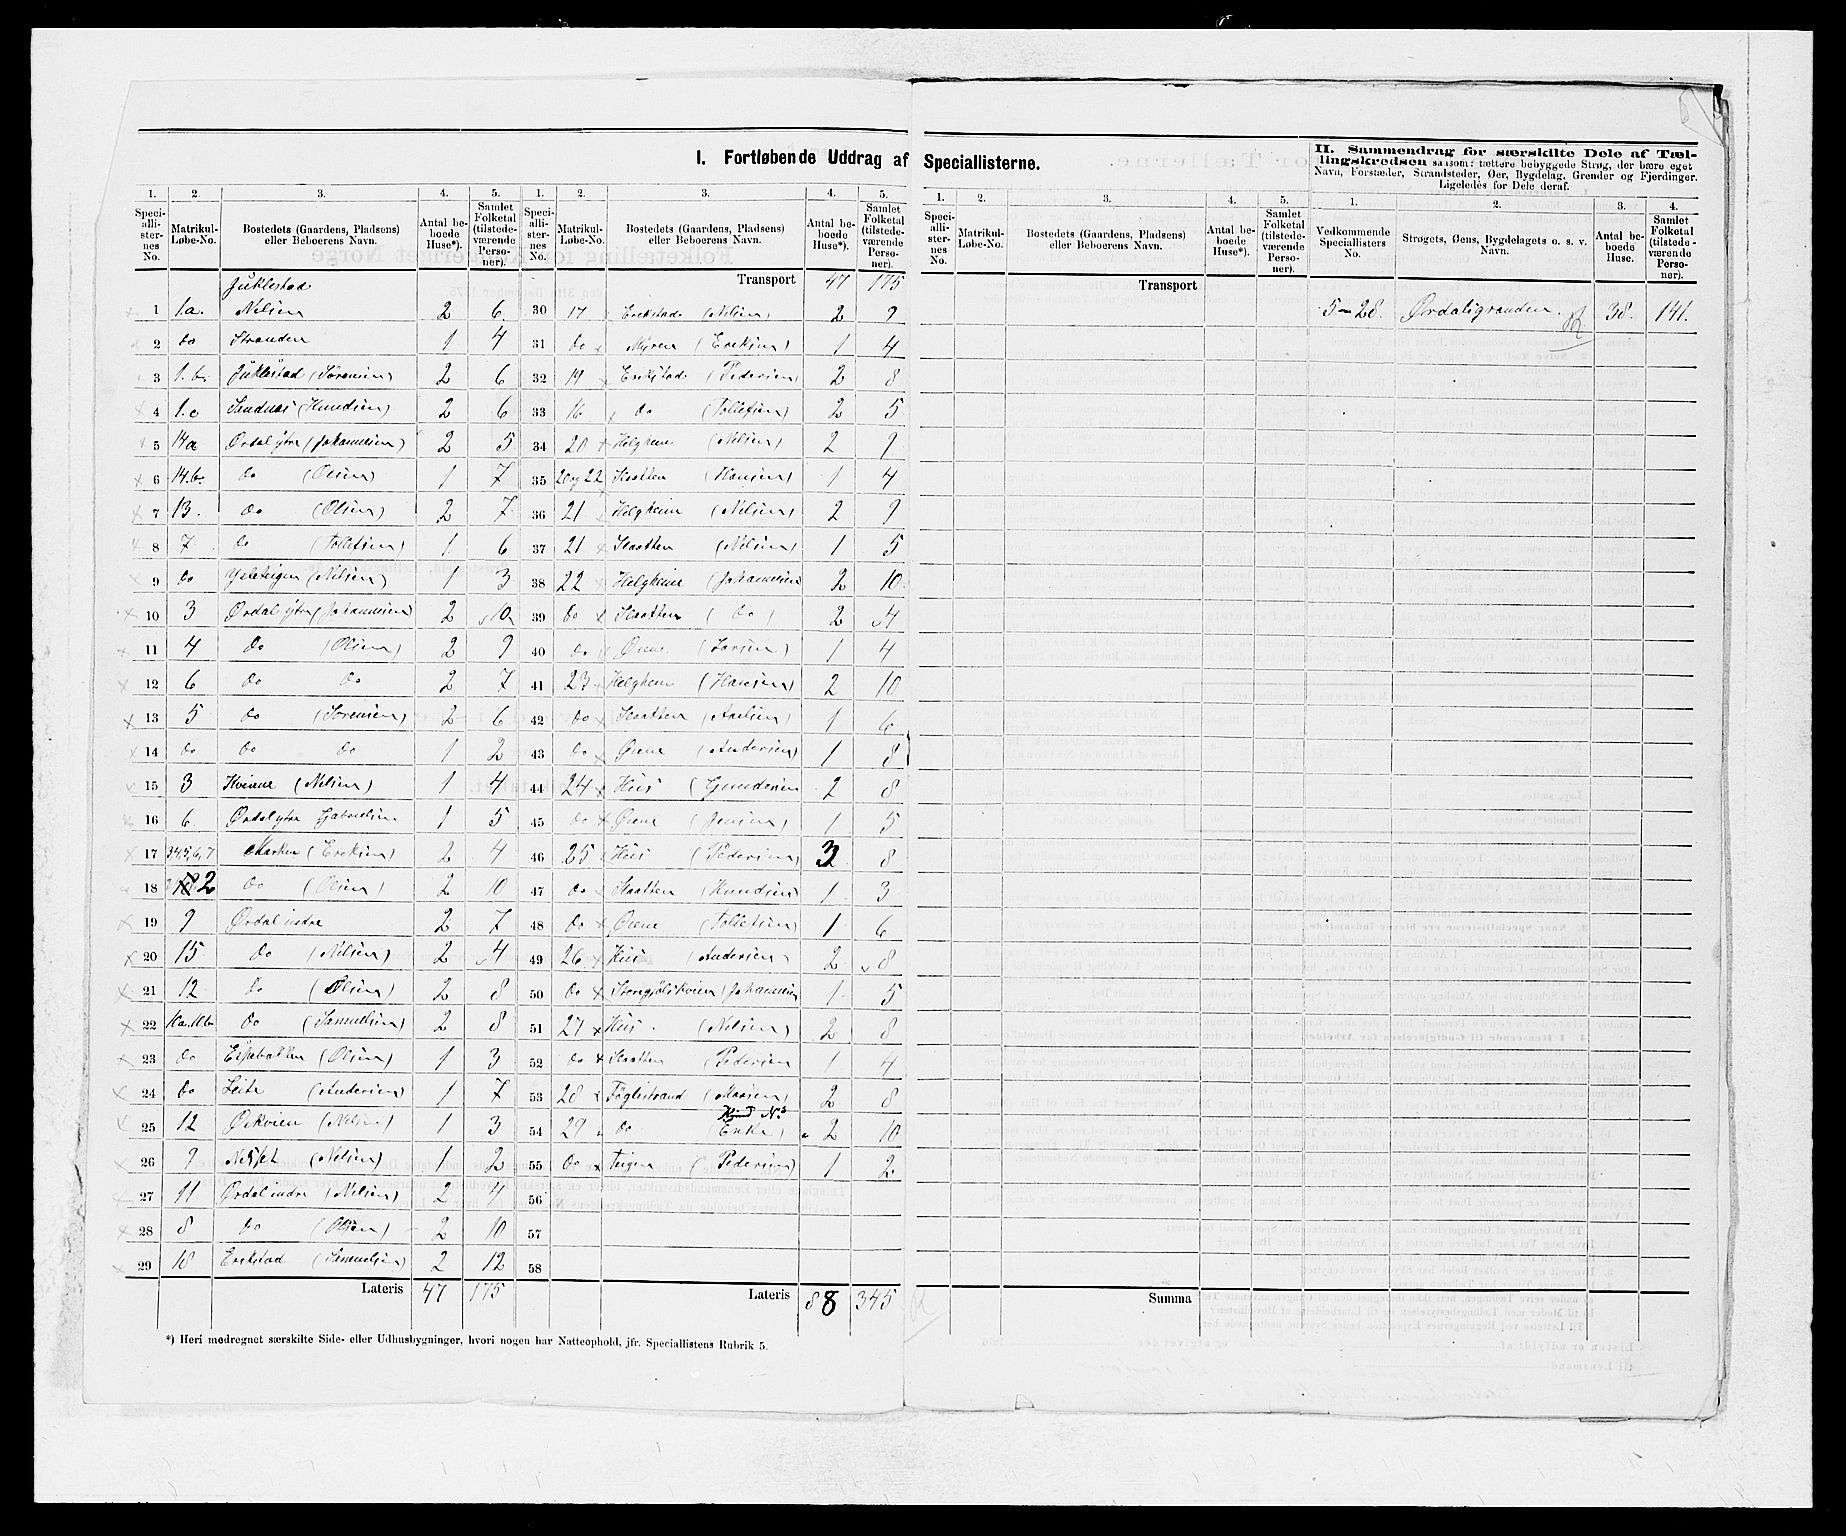 I. Fortløbende Uddrag af Speciallisterne.
II. Sammendrag for særskilte Dele af Tæl-
lingskredsen saasom: tættere bebyggede Strøg, der bære eget
Navn, Forstæder, Strandsteder, Øer, Bygdelag, Grender og Fjerdinger.
Ligeledes for Dele deraf.
1. 2. 3. 4. 5. 1. 2. 3. 4. 5. 1. 2. 3. 4. 5. 1. 2. 3. 4.
Speci-alli-ster-nes No. Matrikul-Løbe-No. Bostedets (Gaardens, Pladsens) eller Beboerens Navn. Antal be-boede Huse*). Samlet Folketal (tilstede-værende Perso-ner).
Speci-alli-ster-nes No. Matrikul-Løbe-No. Bostedets (Gaardens, Pladsens) eller Beboerens Navn. Antal be-boede Huse*). Samlet Folketal (tilstede-værende Perso-ner).
Speci-alli-ster-nes No. Matrikul-Løbe-No. Bostedets (Gaardens, Pladsens) eller Beboerens Navn. Antal be-boede Huse*). Samlet Folketal (tilstede-værende Perso-ner).
Vedkommende Speciallisters No. Strøgets, Øens, Bygdelagets o. s. v. Navn. Antal be-boede Huse. Samlet Folketal (tilstede-værende Perso-ner).
Juklestad
1 1.a. Nilsen 2 6
2 Do Stranden 1 4
3 1.b. Juklestad (Sørensen) 2 6
4 1.c Sandnæs (Knudsen) 2 6
5 14a Ørdal ytre (Johannesen) 2 5
6 14.b. Do (Olsen) 1 7
7 13. Do (Olsen) 2 7
8 7 Do (Tollefsen) 1 6
9 Do (Nilsen) 1 3
10 3 Ørdal ytre (Johannesen) 2 10
11 4 Do (Olsen) 2 9
12 6 Do Do 2 7
13 5 Do (Sørensen) 2 6
14 Do Do Do 1 2
15 3 (Nilsen) 1 4
16 6 Ørdal ytre Gabrielsen 1 5
17 3,4,5,6,7 Marken (Ereksen) 2 4
18 2 Do (Olsen) 2 10
19 9 Ørdal indre 2 7
20 15 Do (Nilsen) 2 4
21 12 Do (Olsen) 2 8
22 Do (Samuelsen) 2 8
23 Do (Olsen) 1 3
24 Do Leite (Andersen) 1 7
25 12 (Nilsen) 1 3
26 9 (Nilsen) 1 2
27 11 Ørdal indre (Nilsen) 2 4
28 8 Do (Olsen) 2 10
29 18 Erekstad (Samuelsen) 2 12
Lateris 47 175
Transport 47 175
30 17 Erekstad (Nilsen) 2 9
31 Do Myren (Ereksen) 1 4
32 19 Erekstad (Pedersen) 2 8
33 16 Do (Tollefsen) 2 5
34 20 Helgheim (Nilsen) 2 9
35 20 og 22 Slaatten (Hansen) 1 4
36 21 Helgheim (Nilsen) 2 9
37 21 Slaatten (Nilsen) 1 5
38 22 Helgheim (Johannesen 2 10
39 Do Slaatten (Do) 2 4
40 Do Øiene (Larsen) 1 4
41 23 Helgheim (Hansen) 2 10
42 Do Slaatten (Axelsen) 1 6
43 Do Øiene (Andersen) 1 8
44 24 Hus (Gundersen 2 8
45 Do Øiene (Jensen) 1 5
46 25 Hus (Pedersen) 3 8
47 Do Slaatten (Knudsen) 1 3
48 Do Øiene (Tollefsen) 1 6
49 26 Hus (Andersen) 2 8
50 Do (Johannesen 1 5
51 27 Hus (Nilsen) 2 8
52 Do Slaatten (Pedersen 1 4
53 28 Føglestrand 2 8
54 29 Do Enke) 2 10
55 Do Teigen (Pedersen) 1 2
56
57
58
Lateris 88 345
Transport
Summa
5-28. Ørdalsgrenden. 38. 141.
*) Heri medregnet særskilte Side- eller Udhusbygninger, hvori nogen har Natteophold, jfr. Speciallistens Rubrik 5.